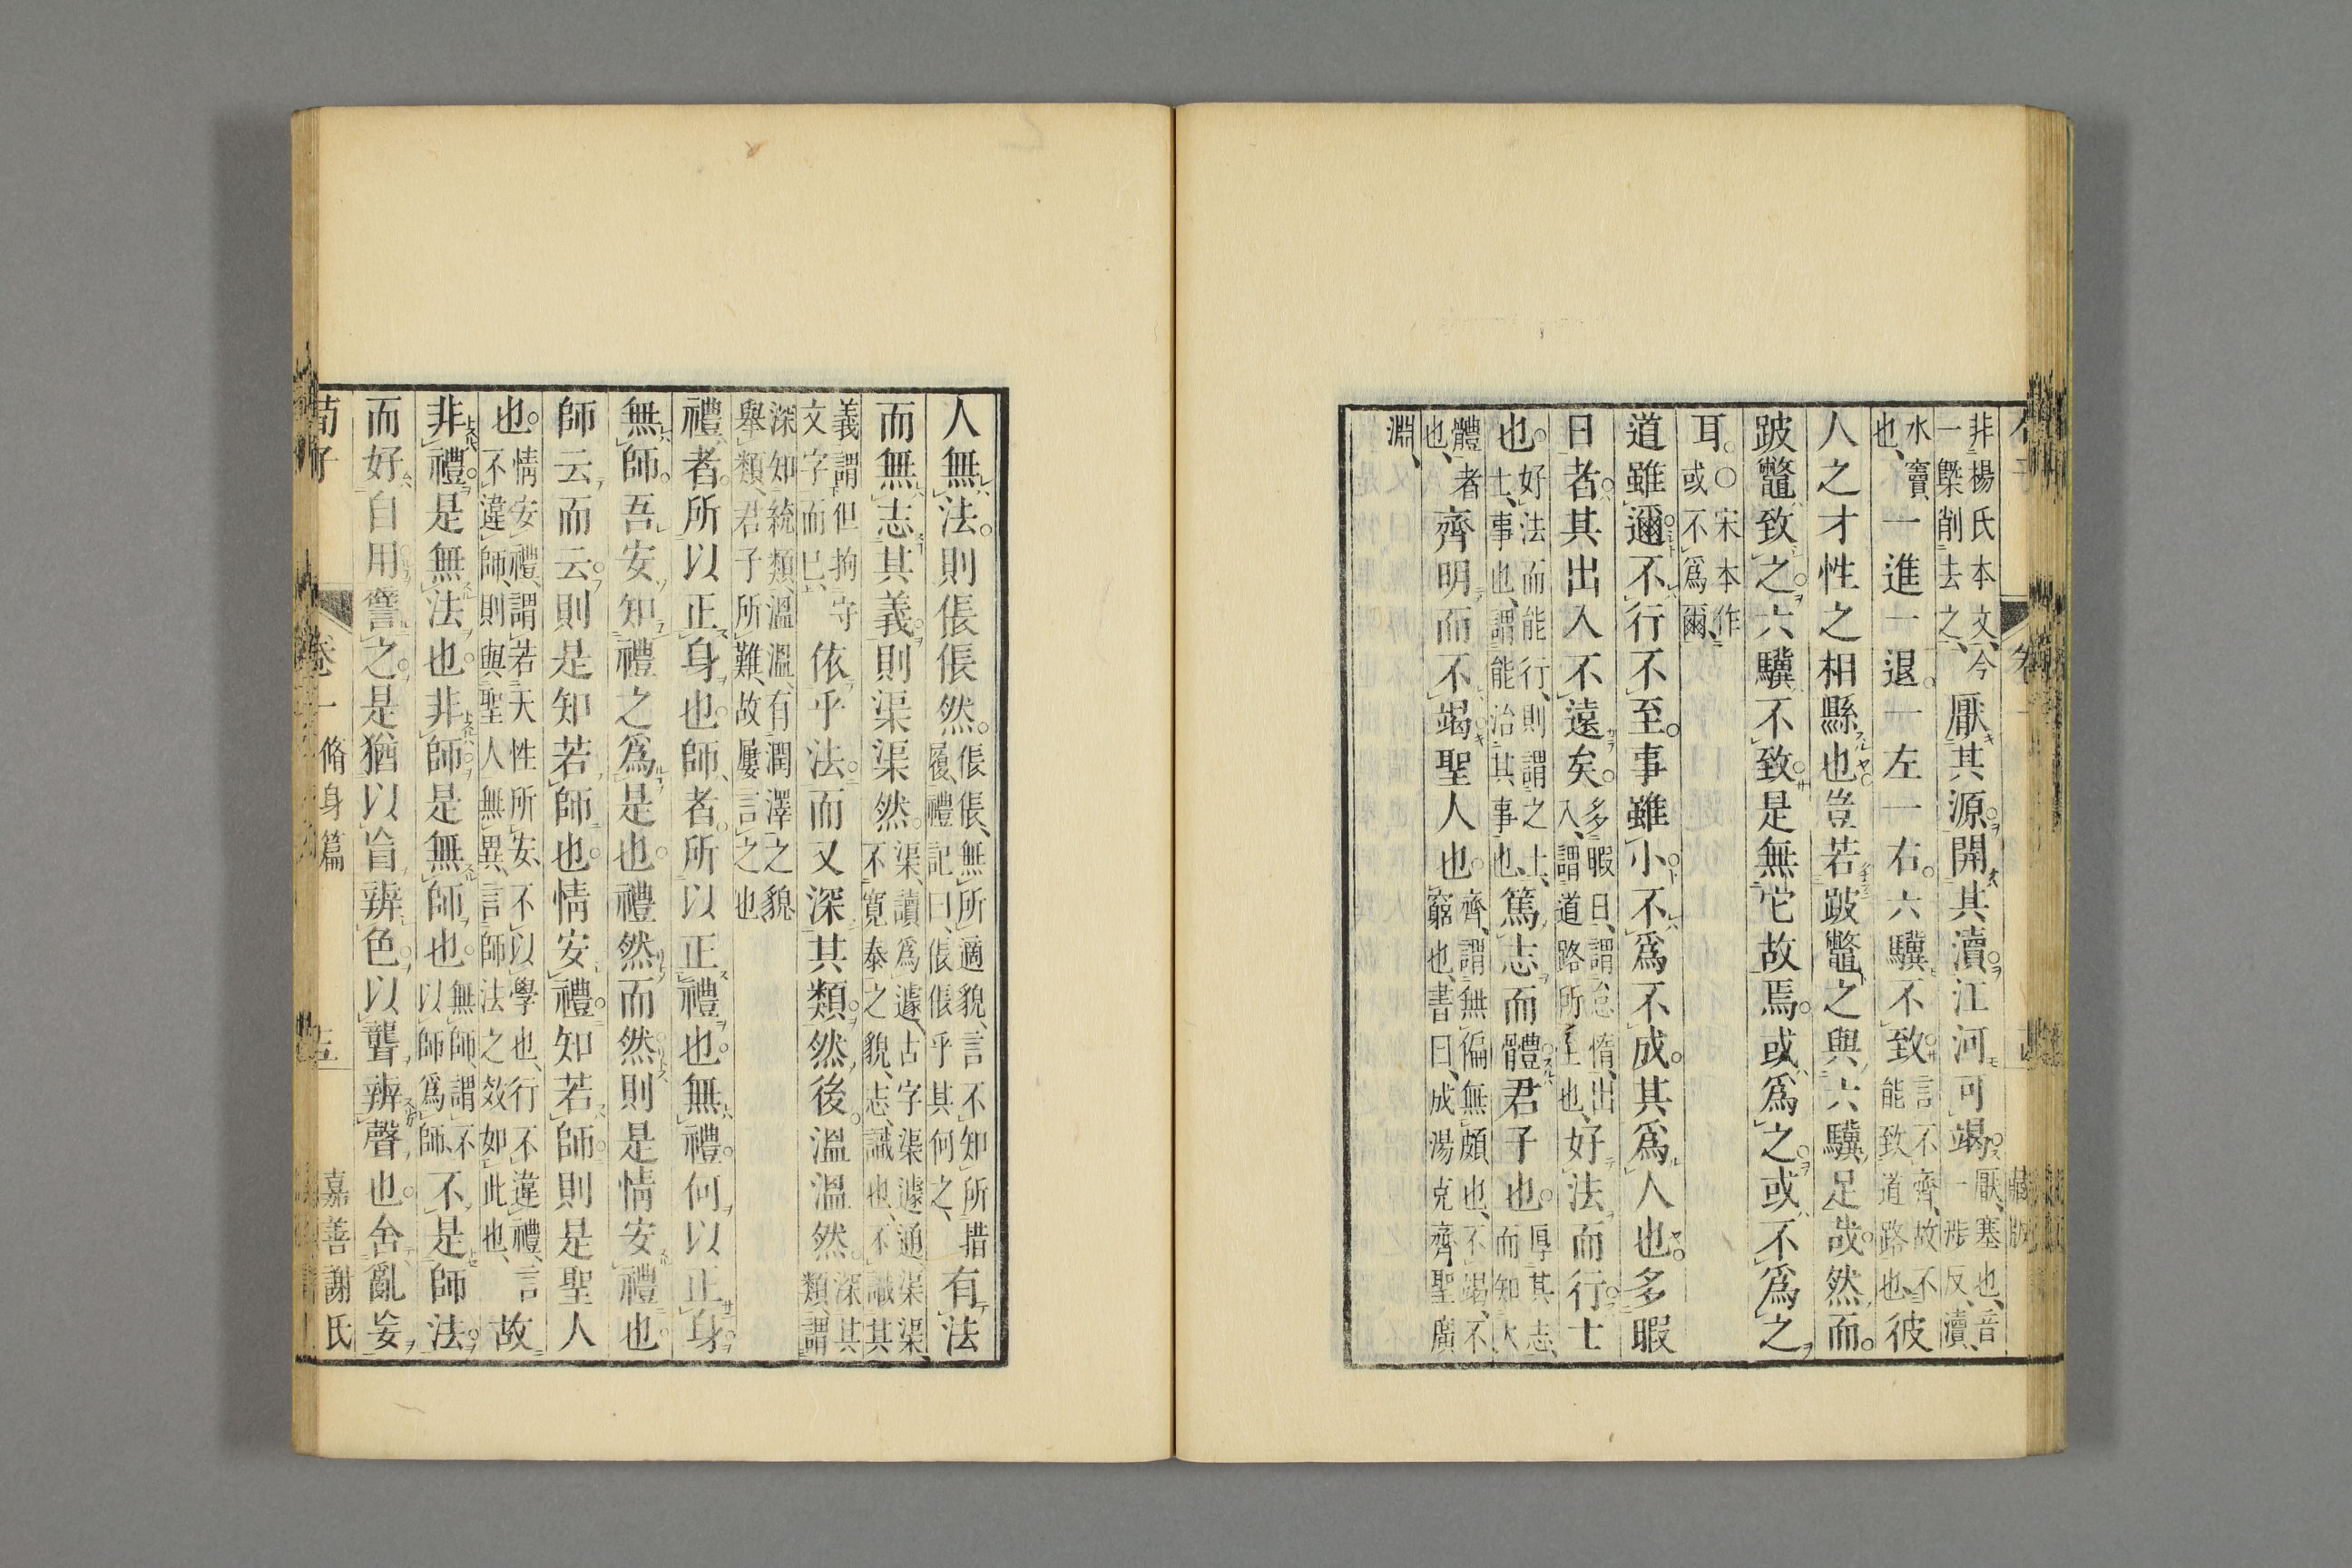 非楊氏本文、今
一槩削去之、
厭其源。開其瀆。江河可竭。
厭、塞也、音
一涉反、瀆、
水竇、
也、
一進一退。一左一右。六驥不致。
言不齊、故不
能致道路也、
彼
人之才性之相縣也。豈若跛鼈之與六驥足哉。然而。
跛鼈致之。六驥不致。是無它故焉。或爲之。或不爲之
耳。
○宋本作
或不爲爾、
道雖邇不行不至。事雖小。不爲不成。其爲人也。多暇
日者。其出入不遠矣。
多暇日、謂怠惰、出
入、謂道路所至也、
好法而行。士
也。
好法而能行、則謂之士、
士、事也、謂能治其事也、
篤志而體。君子也。
厚其志、
而知大
體者
也、
齊明而不竭。聖人也。
齊、謂無偏無頗也、不竭、不
窮也、書曰、成湯克齊聖廣
淵、
人無法。則倀倀然。
倀倀、無所適貌、言不知所措
履、禮記曰、倀倀乎其何之、
有法
而無志其義。則渠渠然。
渠、讀爲遽、古字渠遽通、渠渠、
不寬泰之貌、志、識也、不識其
義謂但拘守
文字而已、
依乎法。而又深其類。然後。溫溫然。
深其
類、謂
深知統類、溫溫、有潤澤之貌、
舉類、君子所難、故屢言之也、
禮者。所以正身也。師者。所以正禮也。無禮。何以正身。
無師。吾安知禮之爲是也。禮然而然。則是情安禮也。
師云而云。則是知若師也。情安禮。知若師。則是聖人
也。
情安禮、謂若天性所安、不以學也、行不違禮、言
不違師、則與聖人無異、言師法之效如此也、
故
非禮。是無法也。非師。是無師也。
無師、謂不
以師爲師、
不是師法。
而好自用。譬之。是猶以盲辨色。以聾辨聲也。舍亂妄
荀子 卷一 脩身篇 嘉善謝氏